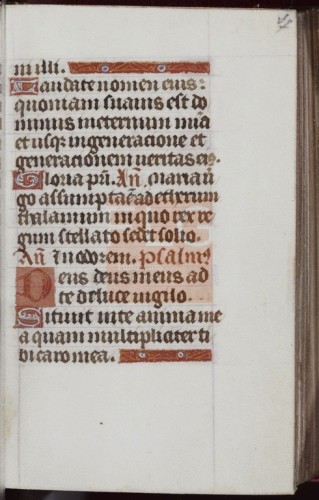 in illi.
Laudate nomen eius:
quoniam suauis est do
minus ineternum mīa
et usqꝫ ingeneracione et
generacionem ueritas eiꝰ.
Gloria pr̄i. An̄. Maria uir
go assumpta ē ad etherium
thalamum in quo rex re
gum stellato sedet solio.
An̄. In odorem. psalmꝰ
Deus deus meus ad
te de luce uigilo.
Sitiuit inte anima me
a quam multipliciter ti
bi caro mea.